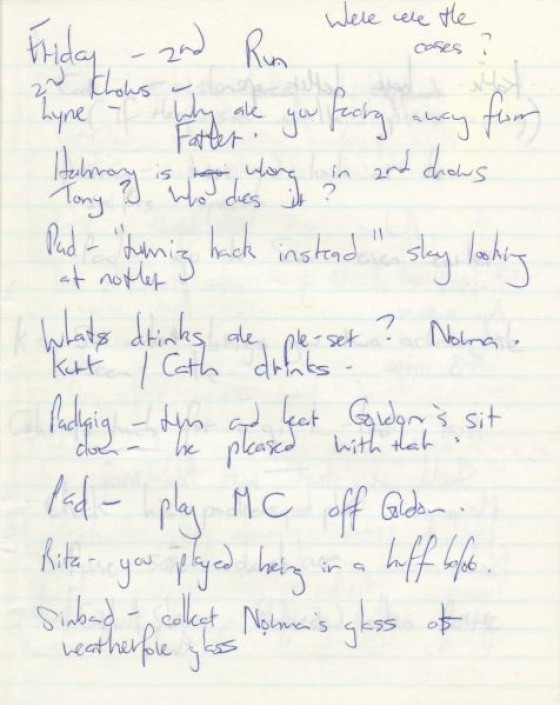 Were were the
cases?
Friday - 2nd Run
2nd chorus -
Lyne - Why are you facing away from
Father.
Harmony is wrong in 2nd chorus
Tony? Who dies it?
Pad - "turning back instead" stay looking
at mother.
Whats drinks are pre-set? Norma.
Kurt / Cath drinks -
Padraig - turn and beat Gordon's sit
down - be pleased with that.
Pad - play MC off Gordon.
Rita - you played being in a huff before.
Sinbad - collect Norma's glass as
weatherfore glass